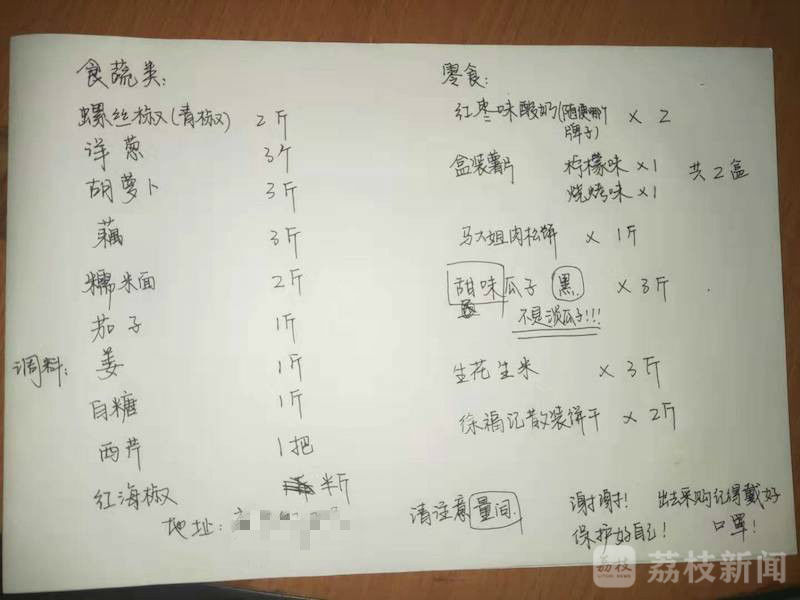 食蔬类:
螺丝椒(青椒) 2斤
洋葱 3个
胡萝卜 3斤
藕 3斤
糯米面 2斤
茄子 1斤
调料: 姜 1斤
白糖 1斤
西芹 1把
红海椒 半斤
地址:
零食:
红枣味酸奶(随便哪个牌子) × 2
盒装薯片 柠檬味 ×1 共2盒
烧烤味 ×1
马大姐肉松饼 × 1斤
甜味瓜子 黑 × 3斤
不是淡瓜子!!!
生花生米 × 3斤
徐福记散装饼干 × 2斤
请注意量词
谢谢! 出去采购记得戴好口罩!
保护好自己!
荔枝
荔枝新闻